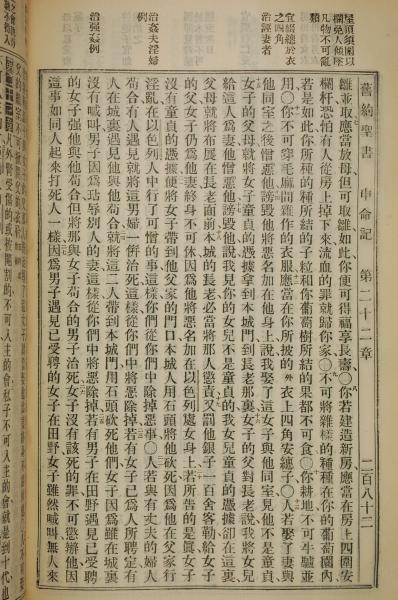 舊約聖書 申命記 第二十二章 二百八十二
屋頂須繞以
欄免人傾墜
凡物不可亂
類
宜綴繸於衣
之四角
治誣妻者
治姦夫淫婦
例
治强姦例
雛並取應當放母但可取雛如此你便可得福享長壽〇你若建造新房應當在房上四圍安
欄杆恐怕有人從房上掉下來流血的罪就歸你家〇不可將雜樣的種種在你的葡萄園內
若是如此你所種的種所結的子粒和你葡萄樹所結的果都不可食〇你耕地不可牛驢並
用〇你不可穿毛麻間雜作的衣服應當在你所披的外衣上四角安繸子〇人若娶了妻與
他同室之後憎惡他謗毀他將惡名加在他身上說我娶了這女子與他同室見他不是童貞
女子的父母就將女子童貞的憑據拿到本城城門到長老那裏女子的父對長老說我將女兒
給這人爲妻他憎惡他謗毀他說我見你的女兒不是童貞的我女兒童貞的憑據卻在這裏
父母就將布展在長老面前本城的長老必當將那人懲責又罰他銀子一百舍客勒給女子
的父女子仍爲他妻終身不可休因爲他將惡名加在以色列處女身上若所告的是眞女子
沒有童貞的憑據便將女子帶到他父家的門口本城人用石頭將他砍死因爲他在父家行
淫亂在以色列人中行了可憎的事這樣你從你們中除掉惡事〇人若與有丈夫的婦人
苟合有人遇見就將這男婦一倂治死這樣從你們中將惡除掉若有女子已爲人所聘定有
人在城裏遇見他與他苟合就將這二人帶到本城門用石頭砍死他們女子因爲雖在城裏
沒有喊叫男子因爲玷辱別人的妻這樣從你們中將惡除掉若有男子在田野遇見已受聘
的女子强他與他苟合但將那與女子苟合的男子治死女子沒有該死的罪不可懲辦他因
這事如同人起來打死人一樣因爲男子遇見已受聘的女子在田野女子雖然喊叫無人來